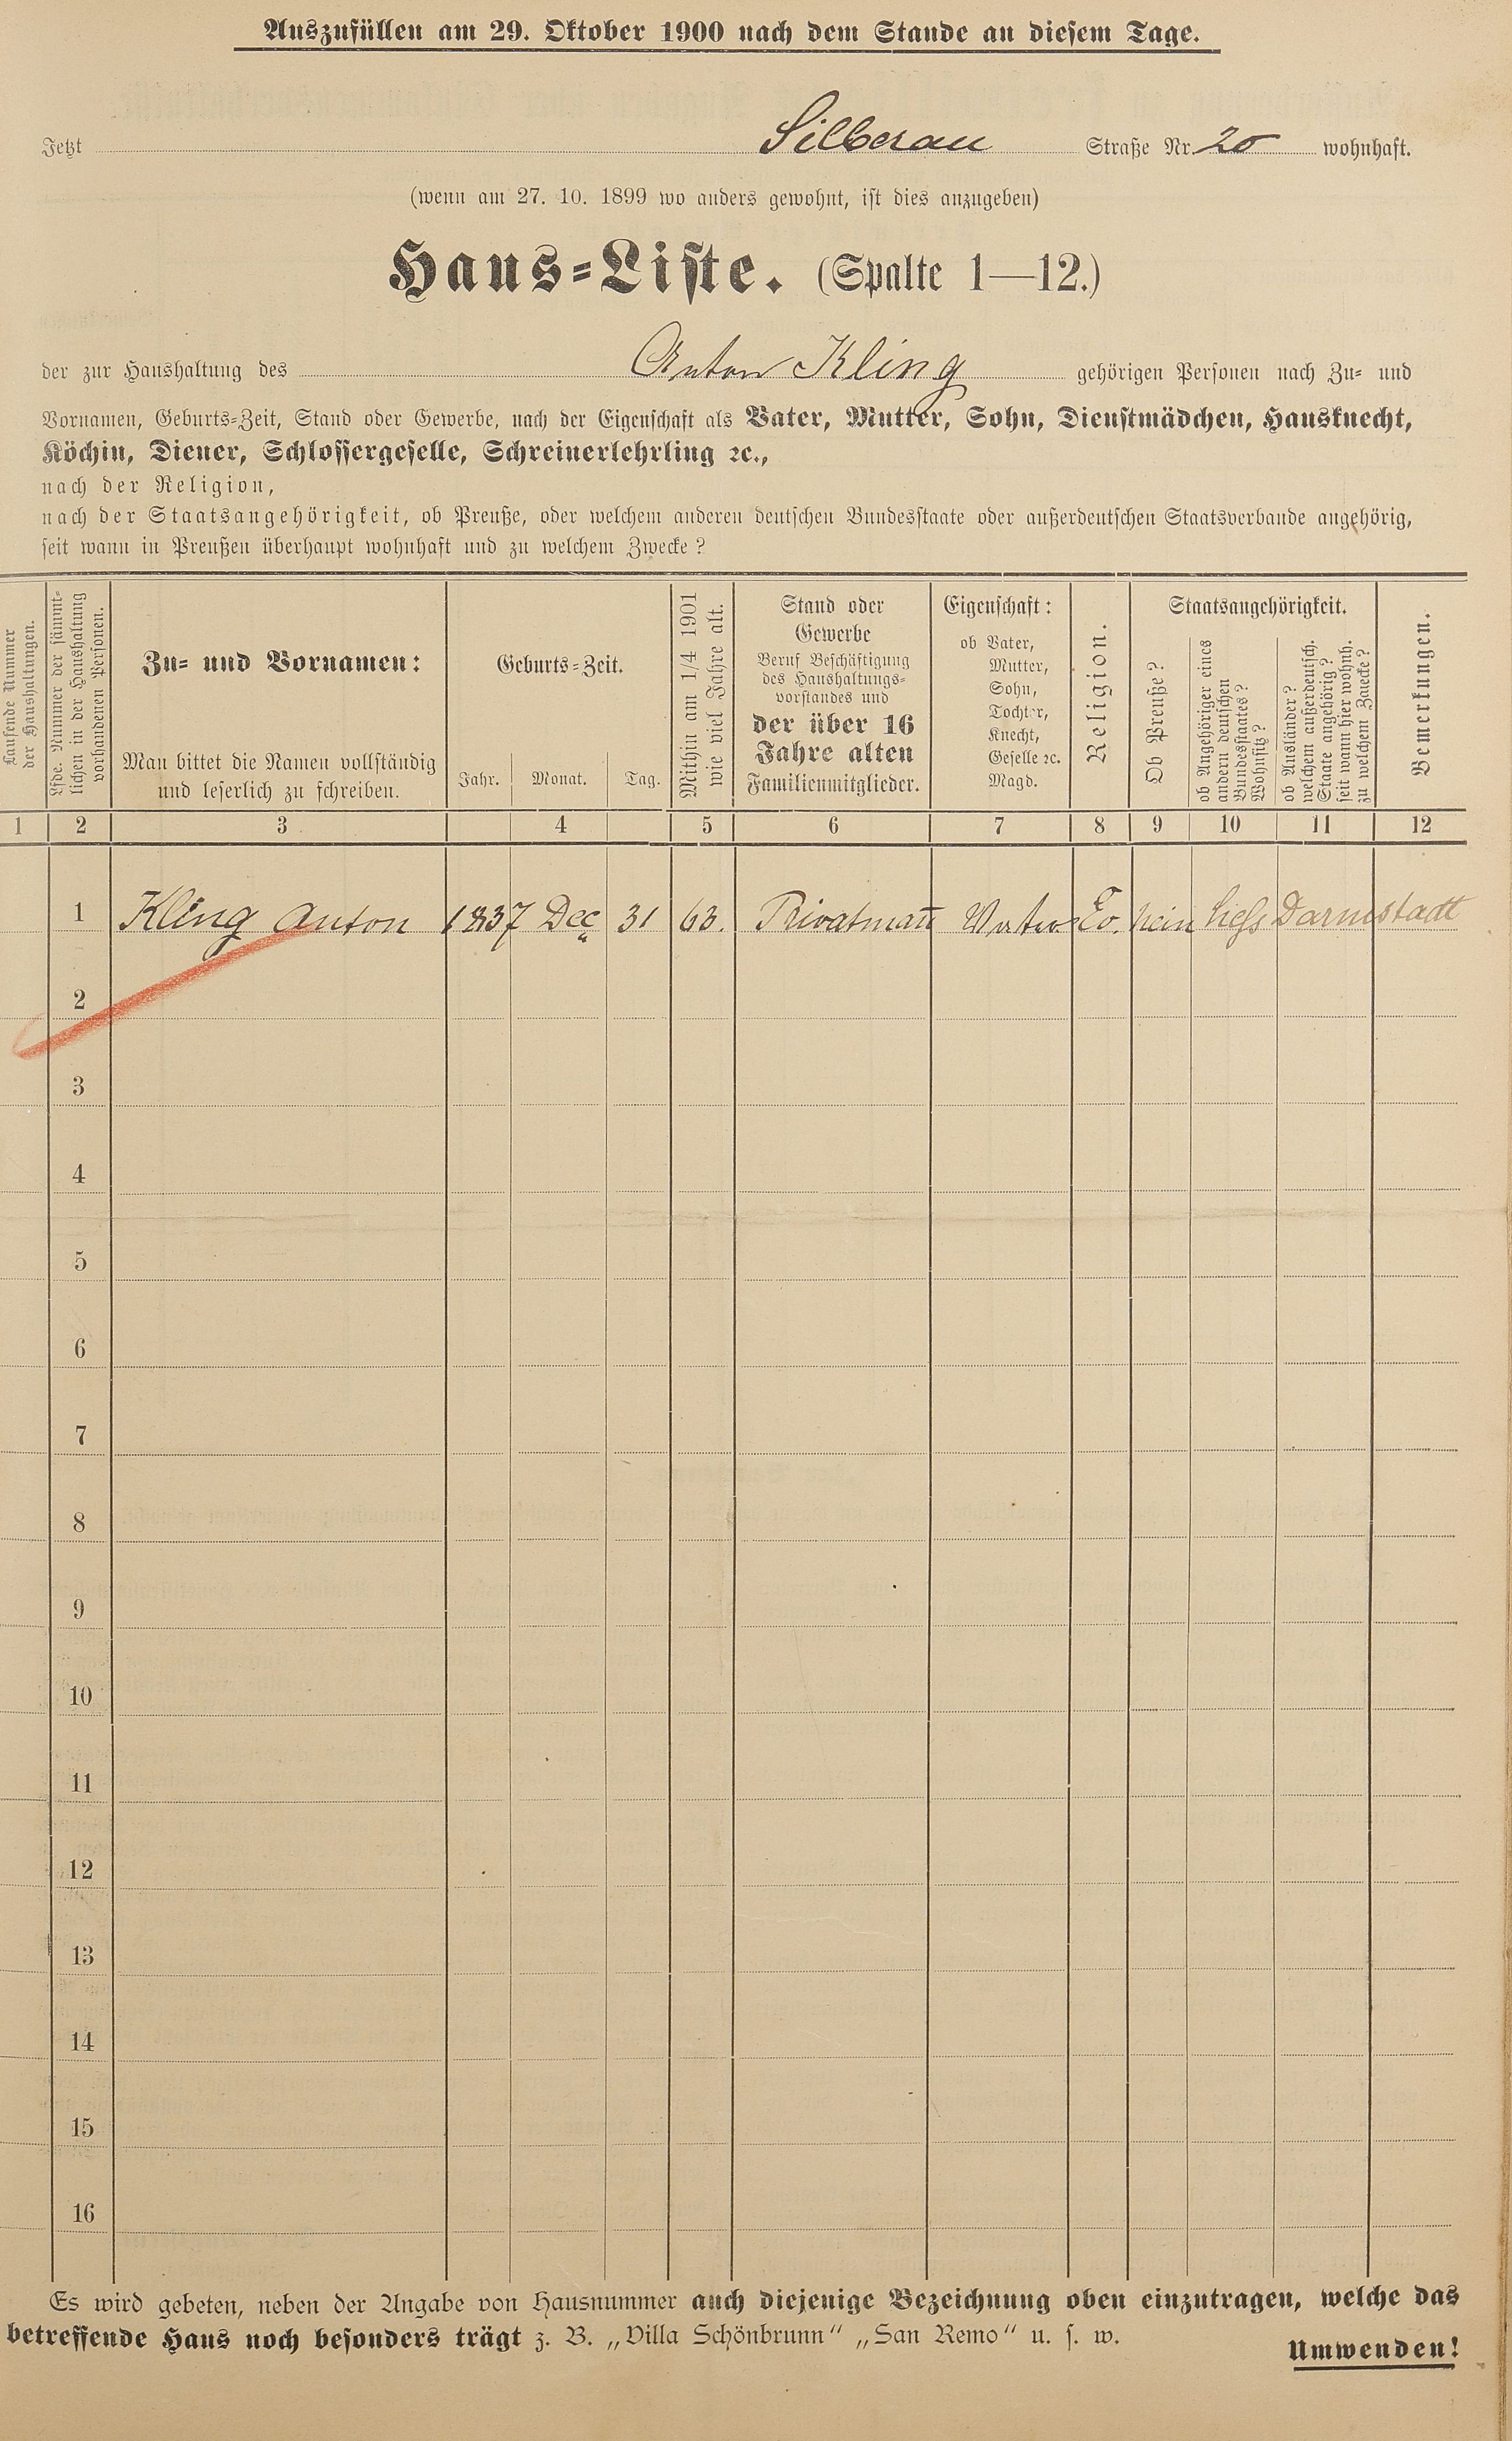 Auszufüllen am 29. Oktober 1900 nach dem Stande an diesem Tage.
Jetzt Silberau Straße Nr. 20 wohnhaft.
(wenn am 27. 10. 1899 wo anders gewohnt, ist dies anzugeben)
Haus-Liste. (Spalte 1—12.)
der zur Haushaltung des Anton Kling gehörigen Personen nach Zu- und
Vornamen, Geburts-Zeit, Stand oder Gewerbe, nach der Eigenschaft als Vater, Mutter, Sohn, Dienstmädchen, Hausknecht,
Köchin, Diener, Schlossergeselle, Schreinerlehrling ꝛc.,
nach der Religion,
nach der Staatsangehörigkeit, ob Preuße, oder welchem anderen deutschen Bundesstaate oder außerdeutschen Staatsverbande angehörig,
seit wann in Preußen überhaupt wohnhaft und zu welchem Zwecke?
Laufende Nummer
der Haushaltungen.
Lfde. Nummer der sämmt-
lichen in der Haushaltung
vorhandenen Personen.
Zu- und Vornamen:
Man bittet die Namen vollständig
und leserlich zu schreiben.
Geburts-Zeit.
Jahr. Monat. Tag.
Mithin am 1/4 1901
wie viel Jahre alt.
Stand oder
Gewerbe
Beruf Beschäftigung
des Haushaltungs-
vorstandes und
der über 16
Jahre alten
Familienmitglieder.
Eigenschaft:
ob Vater,
Mutter,
Sohn,
Tochter,
Knecht,
Geselle ꝛc.
Magd.
Religion.
Staatsangehörigkeit.
Ob Preuße?
ob Angehöriger eines
andern deutschen
Bundesstaates?
Wohnsitz?
ob Ausländer?
welchem außerdeutsch.
Staate angehörig?
seit wann hier wohnh.
zu welchem Zwecke?
Bemerkungen.
1 2 3 4 5 6 7 8 9 10 11 12
1 Kling Anton 1837 Dec 31 63. Privatmañ Vater Ev. nein hess Darmstadt
2
3
4
5
6
7
8
9
10
11
12
13
14
15
16
Es wird gebeten, neben der Angabe von Hausnummer auch diejenige Bezeichnung oben einzutragen, welche das
betreffende Haus noch besonders trägt z. B. „Villa Schönbrunn“ „San Remo“ u. s. w.
Umwenden!